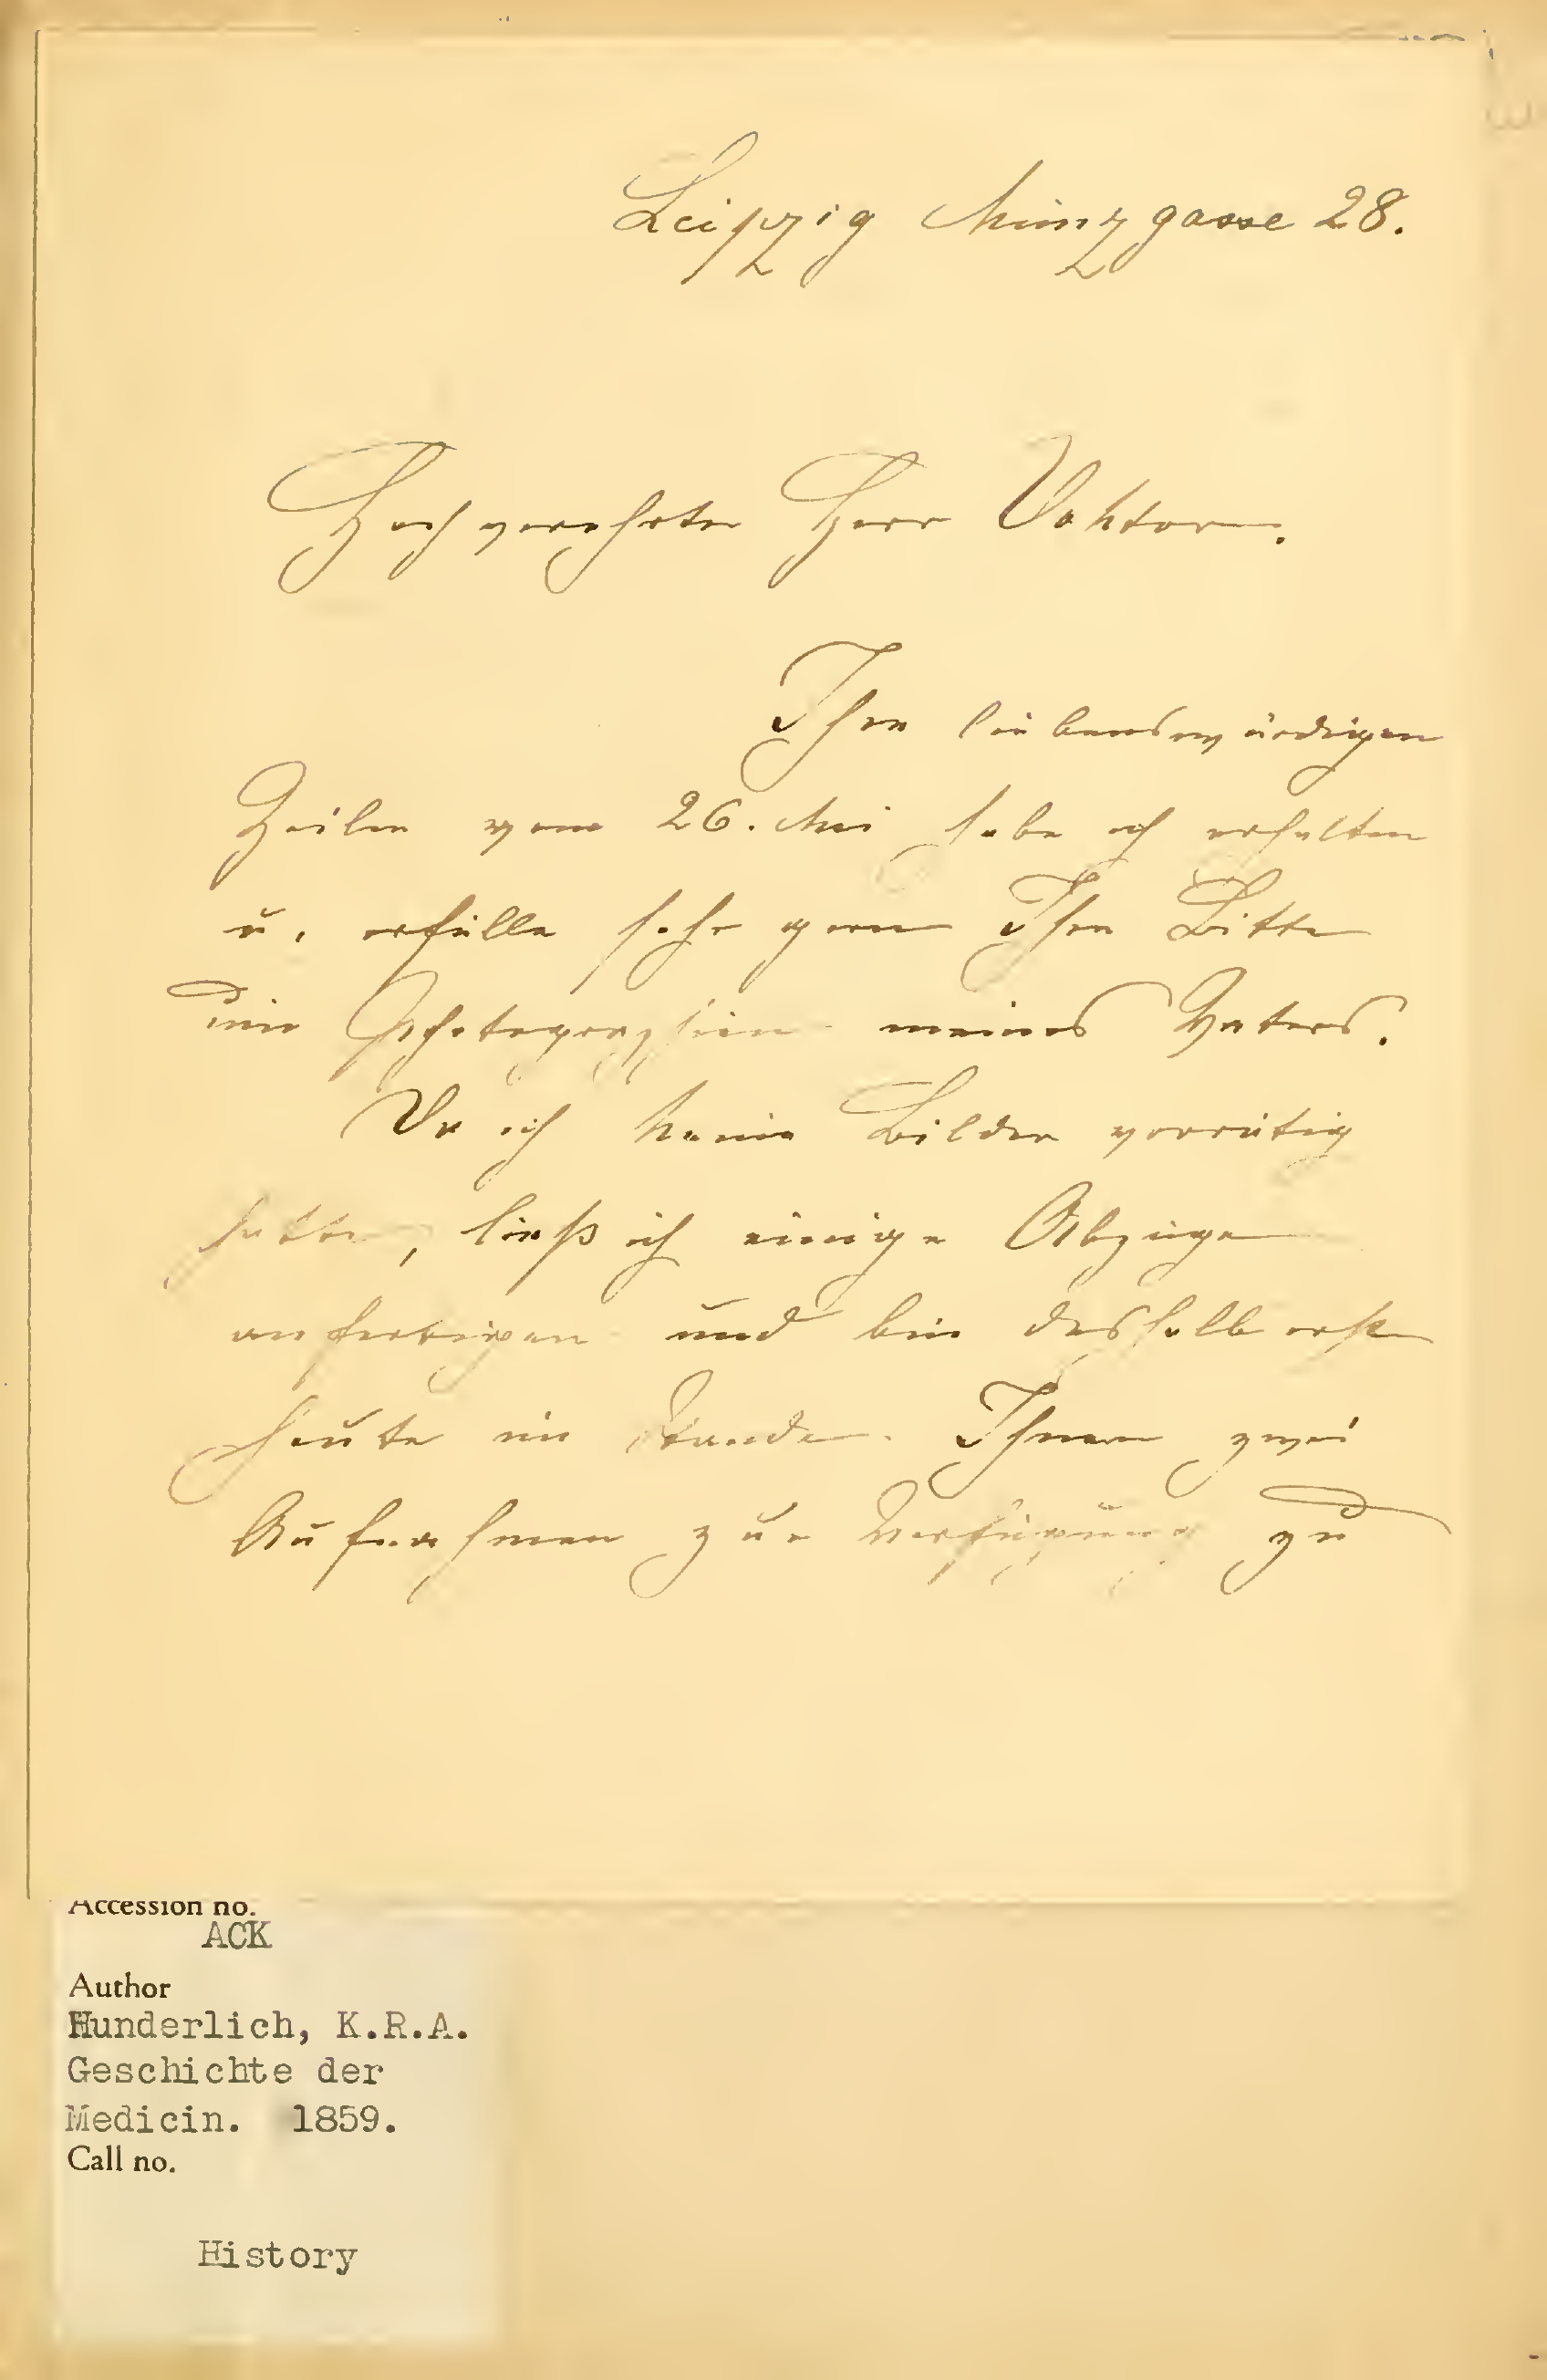 Leipzig Münzgasse 28.
Hochverehrter Herr Doktor.
Ihre liebenswürdigen
Zeilen vom 26. Mai habe ich erhalten
u. erfülle sehr gern Ihre Bitte
um Photographien meines Vaters.
Da ich keine Bilder vorrätig
hatte, ließ ich einige Abzüge
anfertigen und bin deshalb erst
heute im Stande Ihnen zwei
Aufnahmen zur Verfügung zu
Accession no.
ACK
Author
Hunderlich, K.R.A.
Geschichte der
Medicin. 1859.
Call no.
History